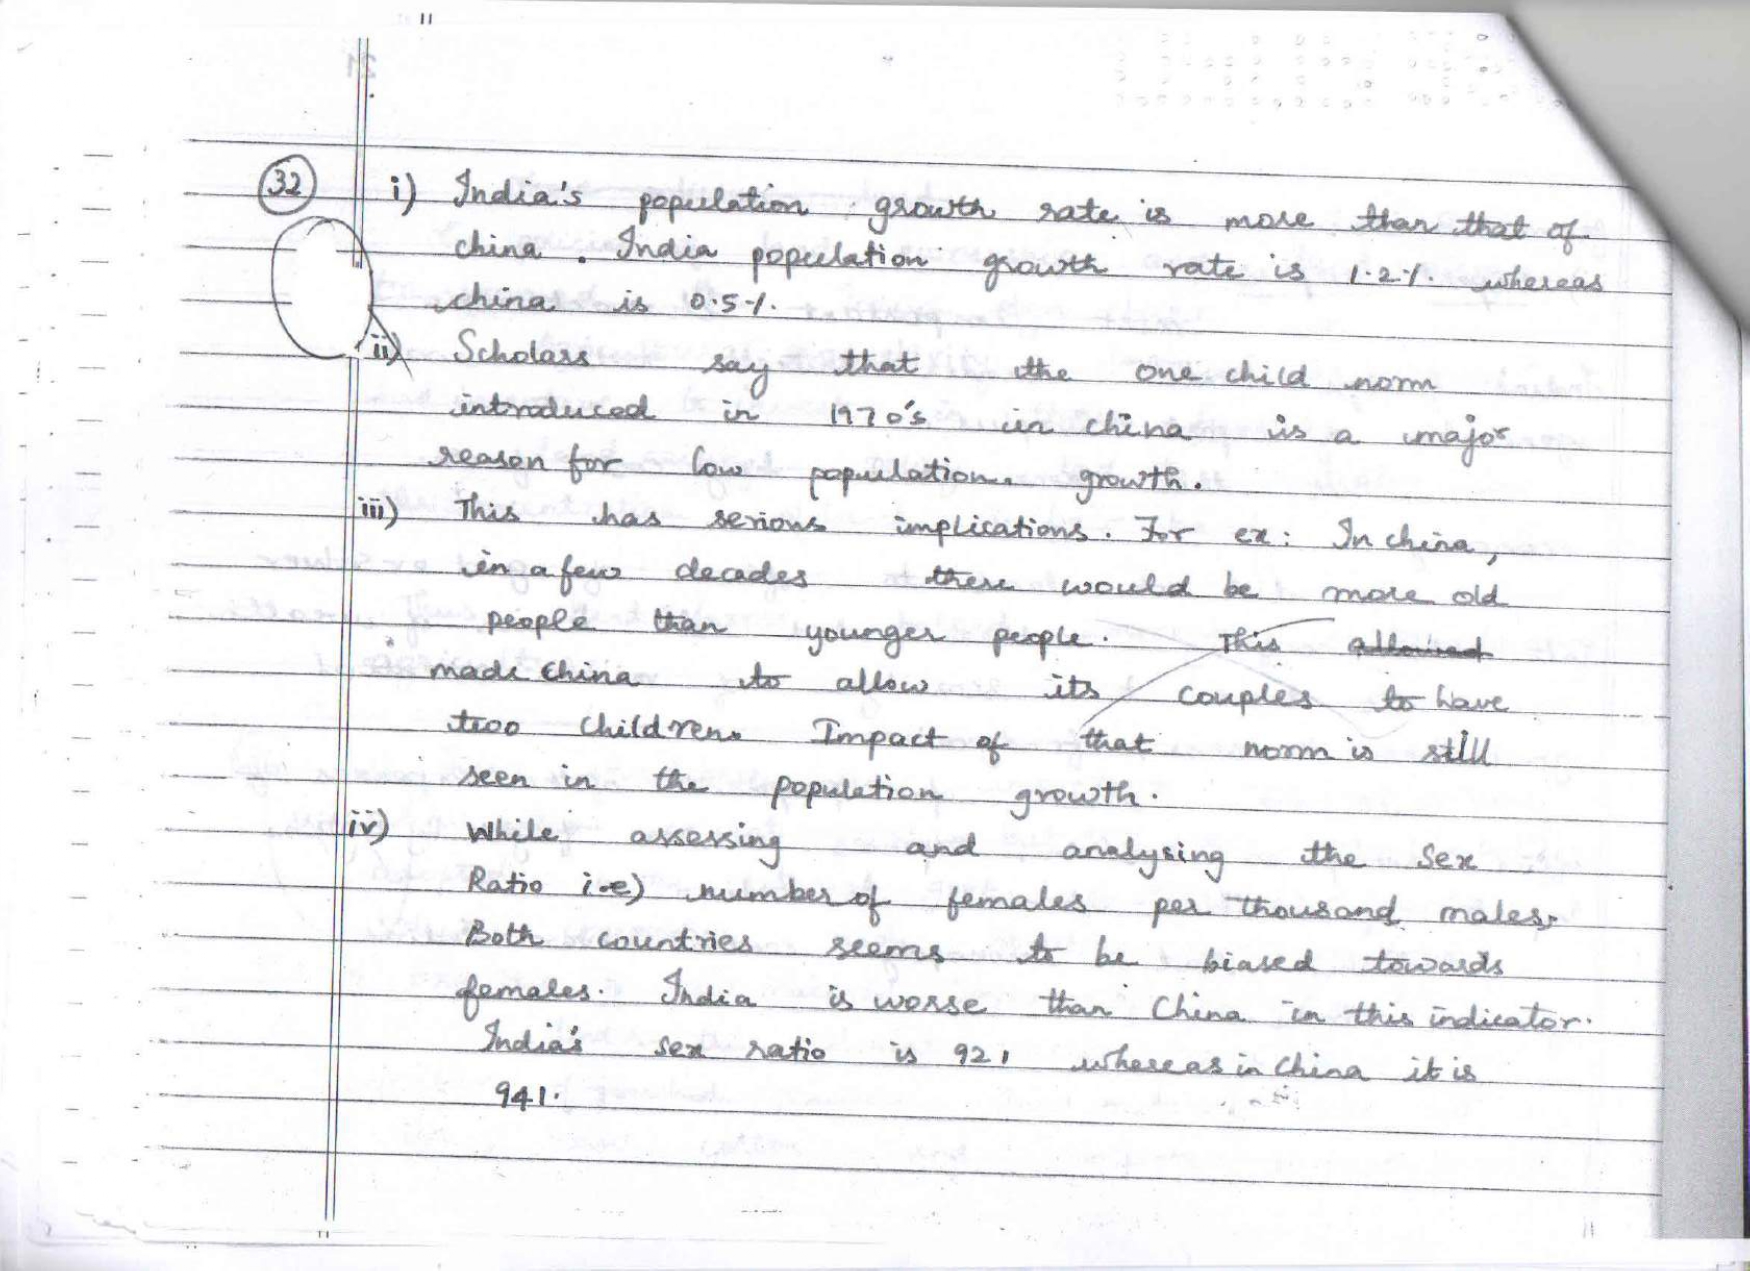 32 i) India's population growth rate is more than that of
china. India population growth rate is 1.2%. whereas
china is 0.5%.
ii) Scholars say that the one child norm
introduced in 1970's in china is a major
reason for low population growth.
iii) This has serious implications. For ex: In china,
in a few decades there would be more old
people than younger people. This allowed
made China to allow its couples to have
two children. Impact of that norm is still
seen in the population growth.
iv) While assessing and analysing the Sex
Ratio i.e) number of females per thousand males,
Both countries seems to be biased towards
females. India is worse than China in this indicator.
India's sex ratio is 921 whereas in China it is
941.